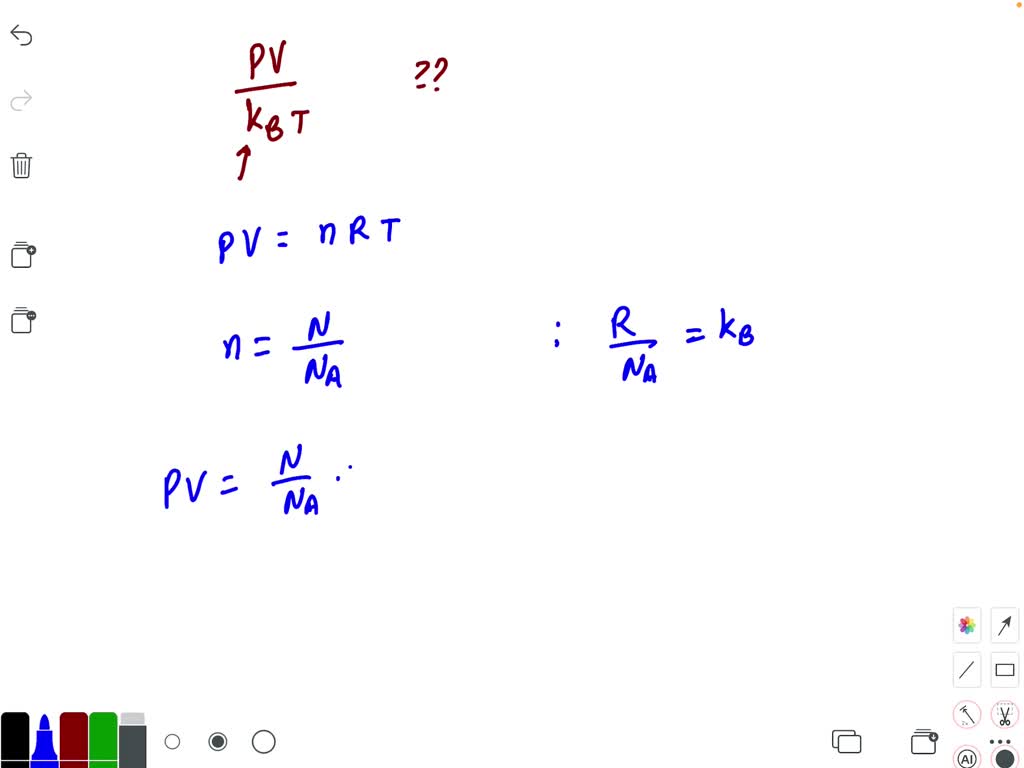 PV / k_B T ??
PV = nRT
n = N / N_A ; R / N_A = k_B
PV = N / N_A ·
AI